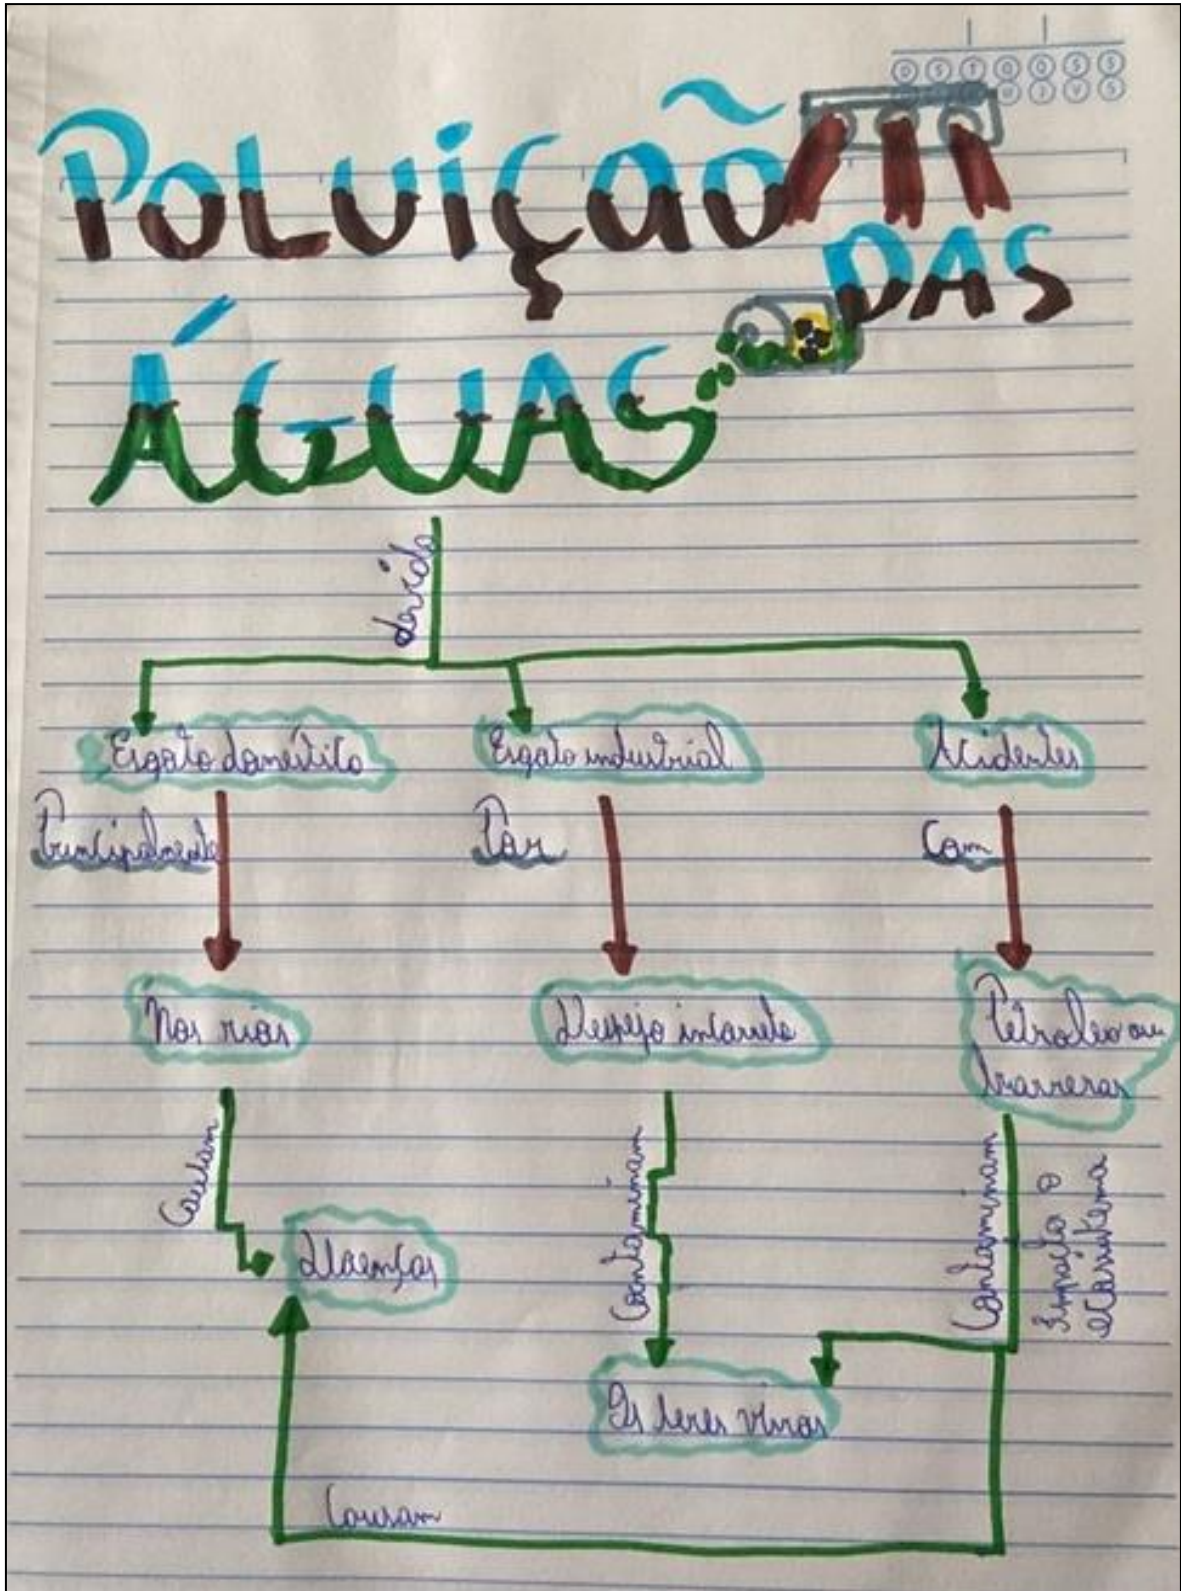 D S T Q Q S S
POLUIÇÃO
DAS
ÁGUAS
devido
Esgoto doméstico
Esgoto industrial
Acidentes
Principalmente
Por
Com
Nos rios
Despejo incorreto
Petroleo ou
barreras
Causam
Contaminam
Contaminam
Impacto o
ecossistema
Doenças
Os seres vivos
Causam